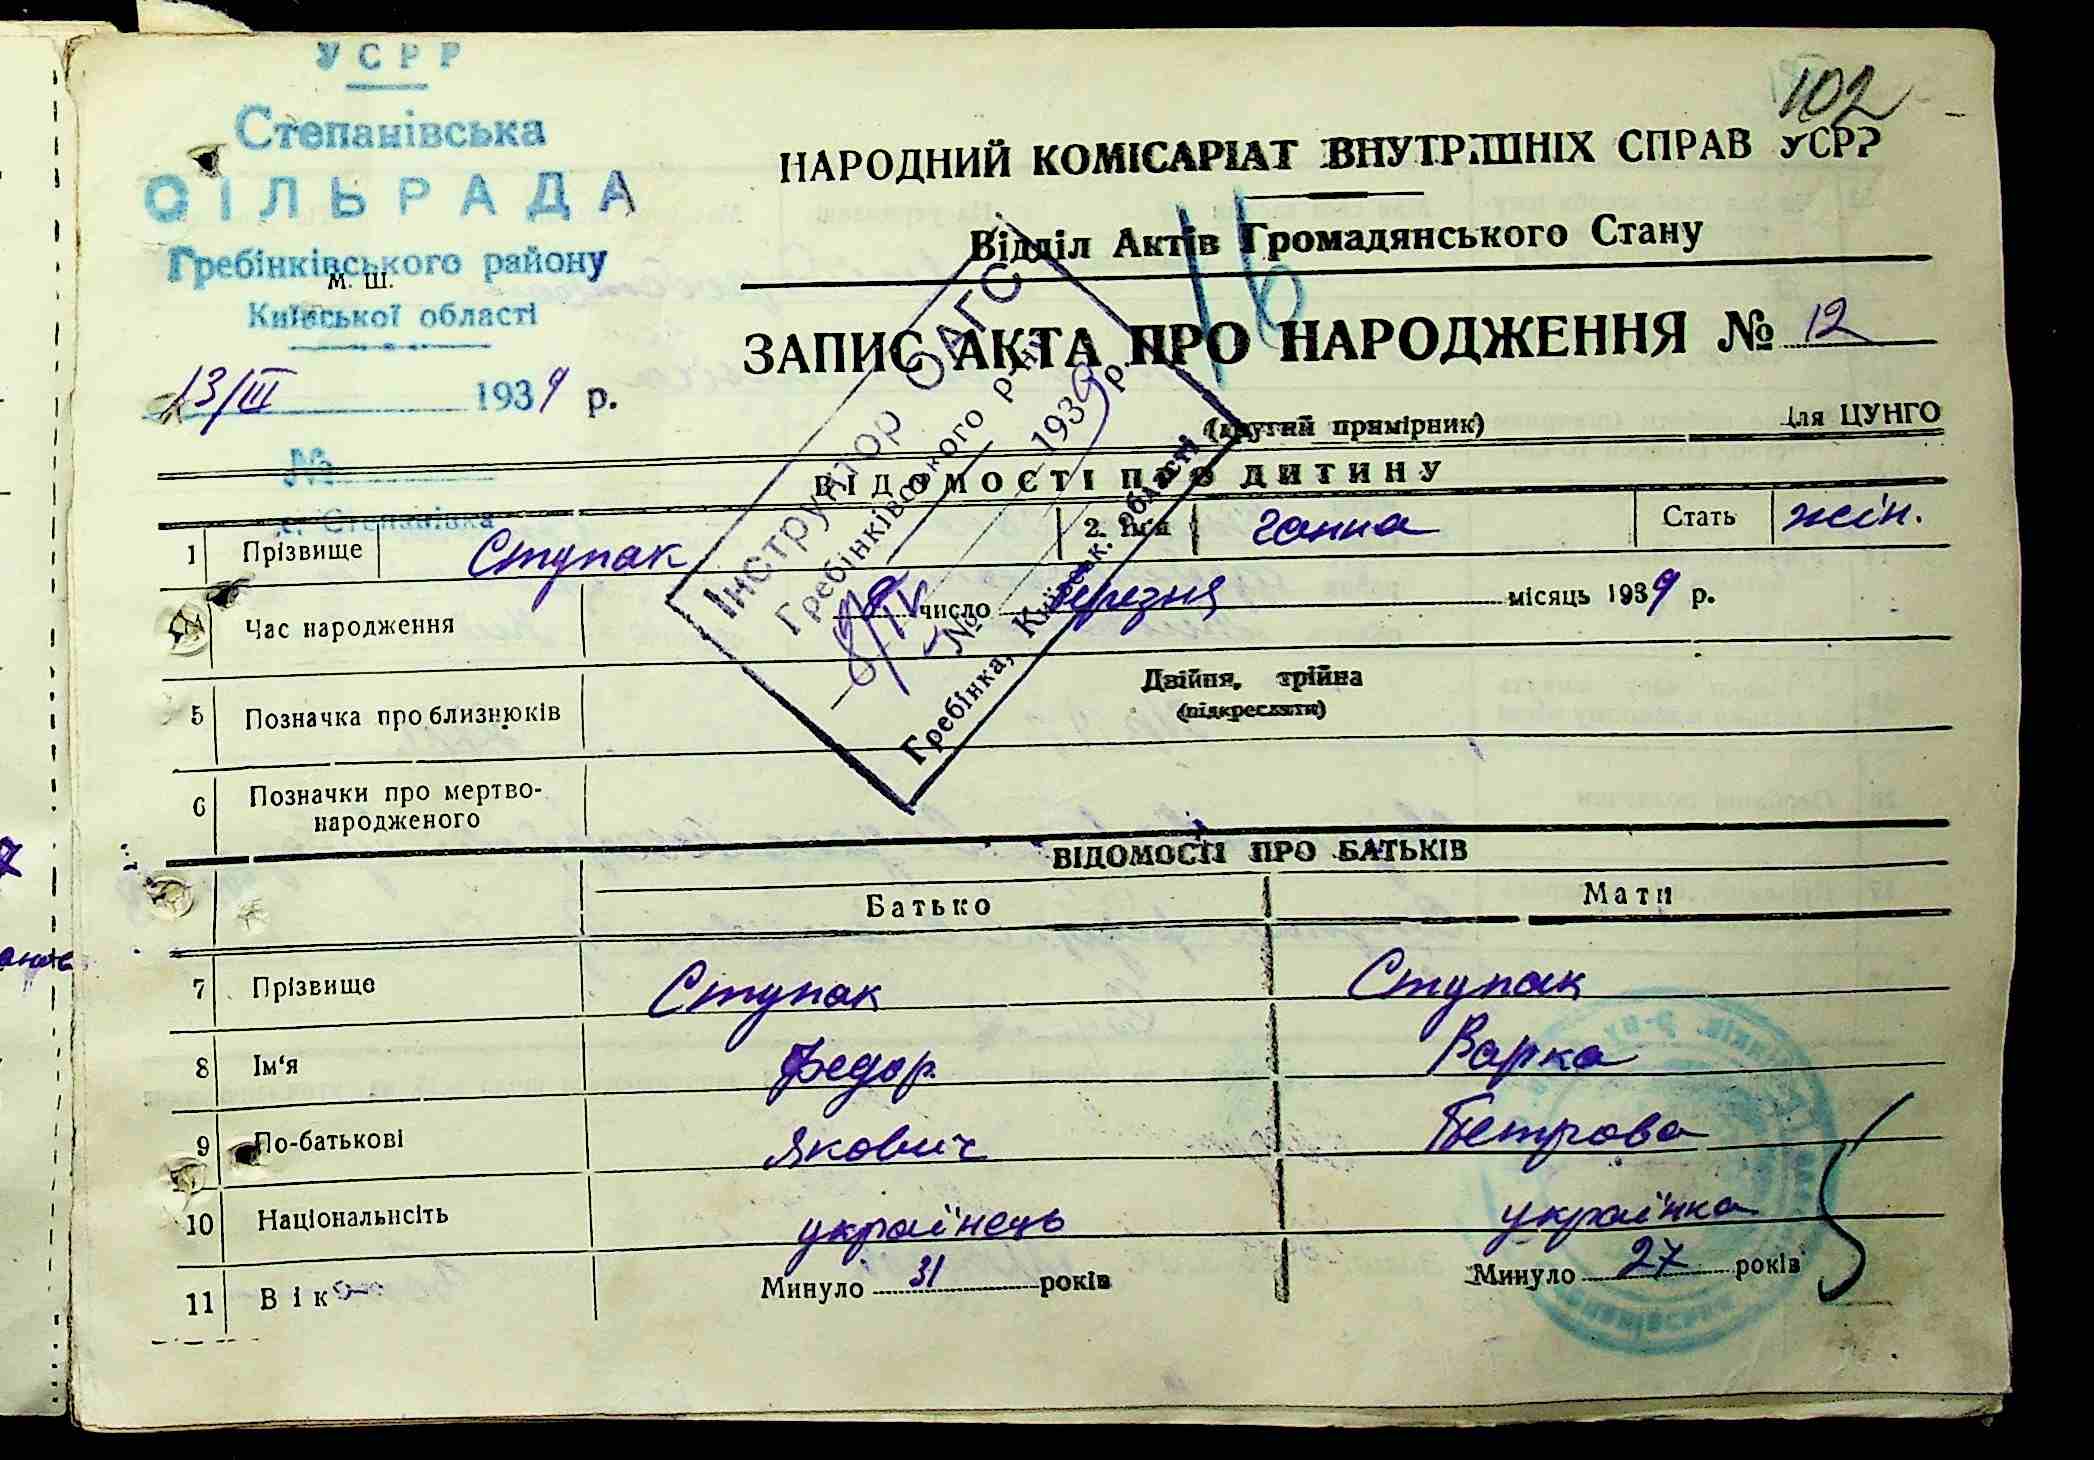 УСРР
Степанівська
СІЛЬРАДА
Гребінківського району
м. ш.
Київської області
13/III 1939 р.
№
с. Степанівка
102
НАРОДНИЙ КОМІСАРІАТ ВНУТРІШНІХ СПРАВ УСРР
Відділ Актів Громадянського Стану
16
ЗАПИС АКТА ПРО НАРОДЖЕННЯ № 12
(другий примірник) Для ЦУНГО
Інструктор ОАГС
Гребінківського р-ну
№ 193 р.
Гребінка, Київськ. області
ВІДОМОСТІ ПРО ДИТИНУ
1 Прізвище Ступак 2. Ім'я Ганна Стать жін.
Час народження число березня місяць 1939 р.
5 Позначка про близнюків Двійня, трійна
(підкреслити)
6 Позначки про мертво-
народженого
ВІДОМОСТІ ПРО БАТЬКІВ
Батько Мати
7 Прізвище Ступак Ступак
8 Ім'я Федор Варка
9 По-батькові Якович Петрова
10 Національнсіть українець українка
11 Вік Минуло 31 років Минуло 27 років